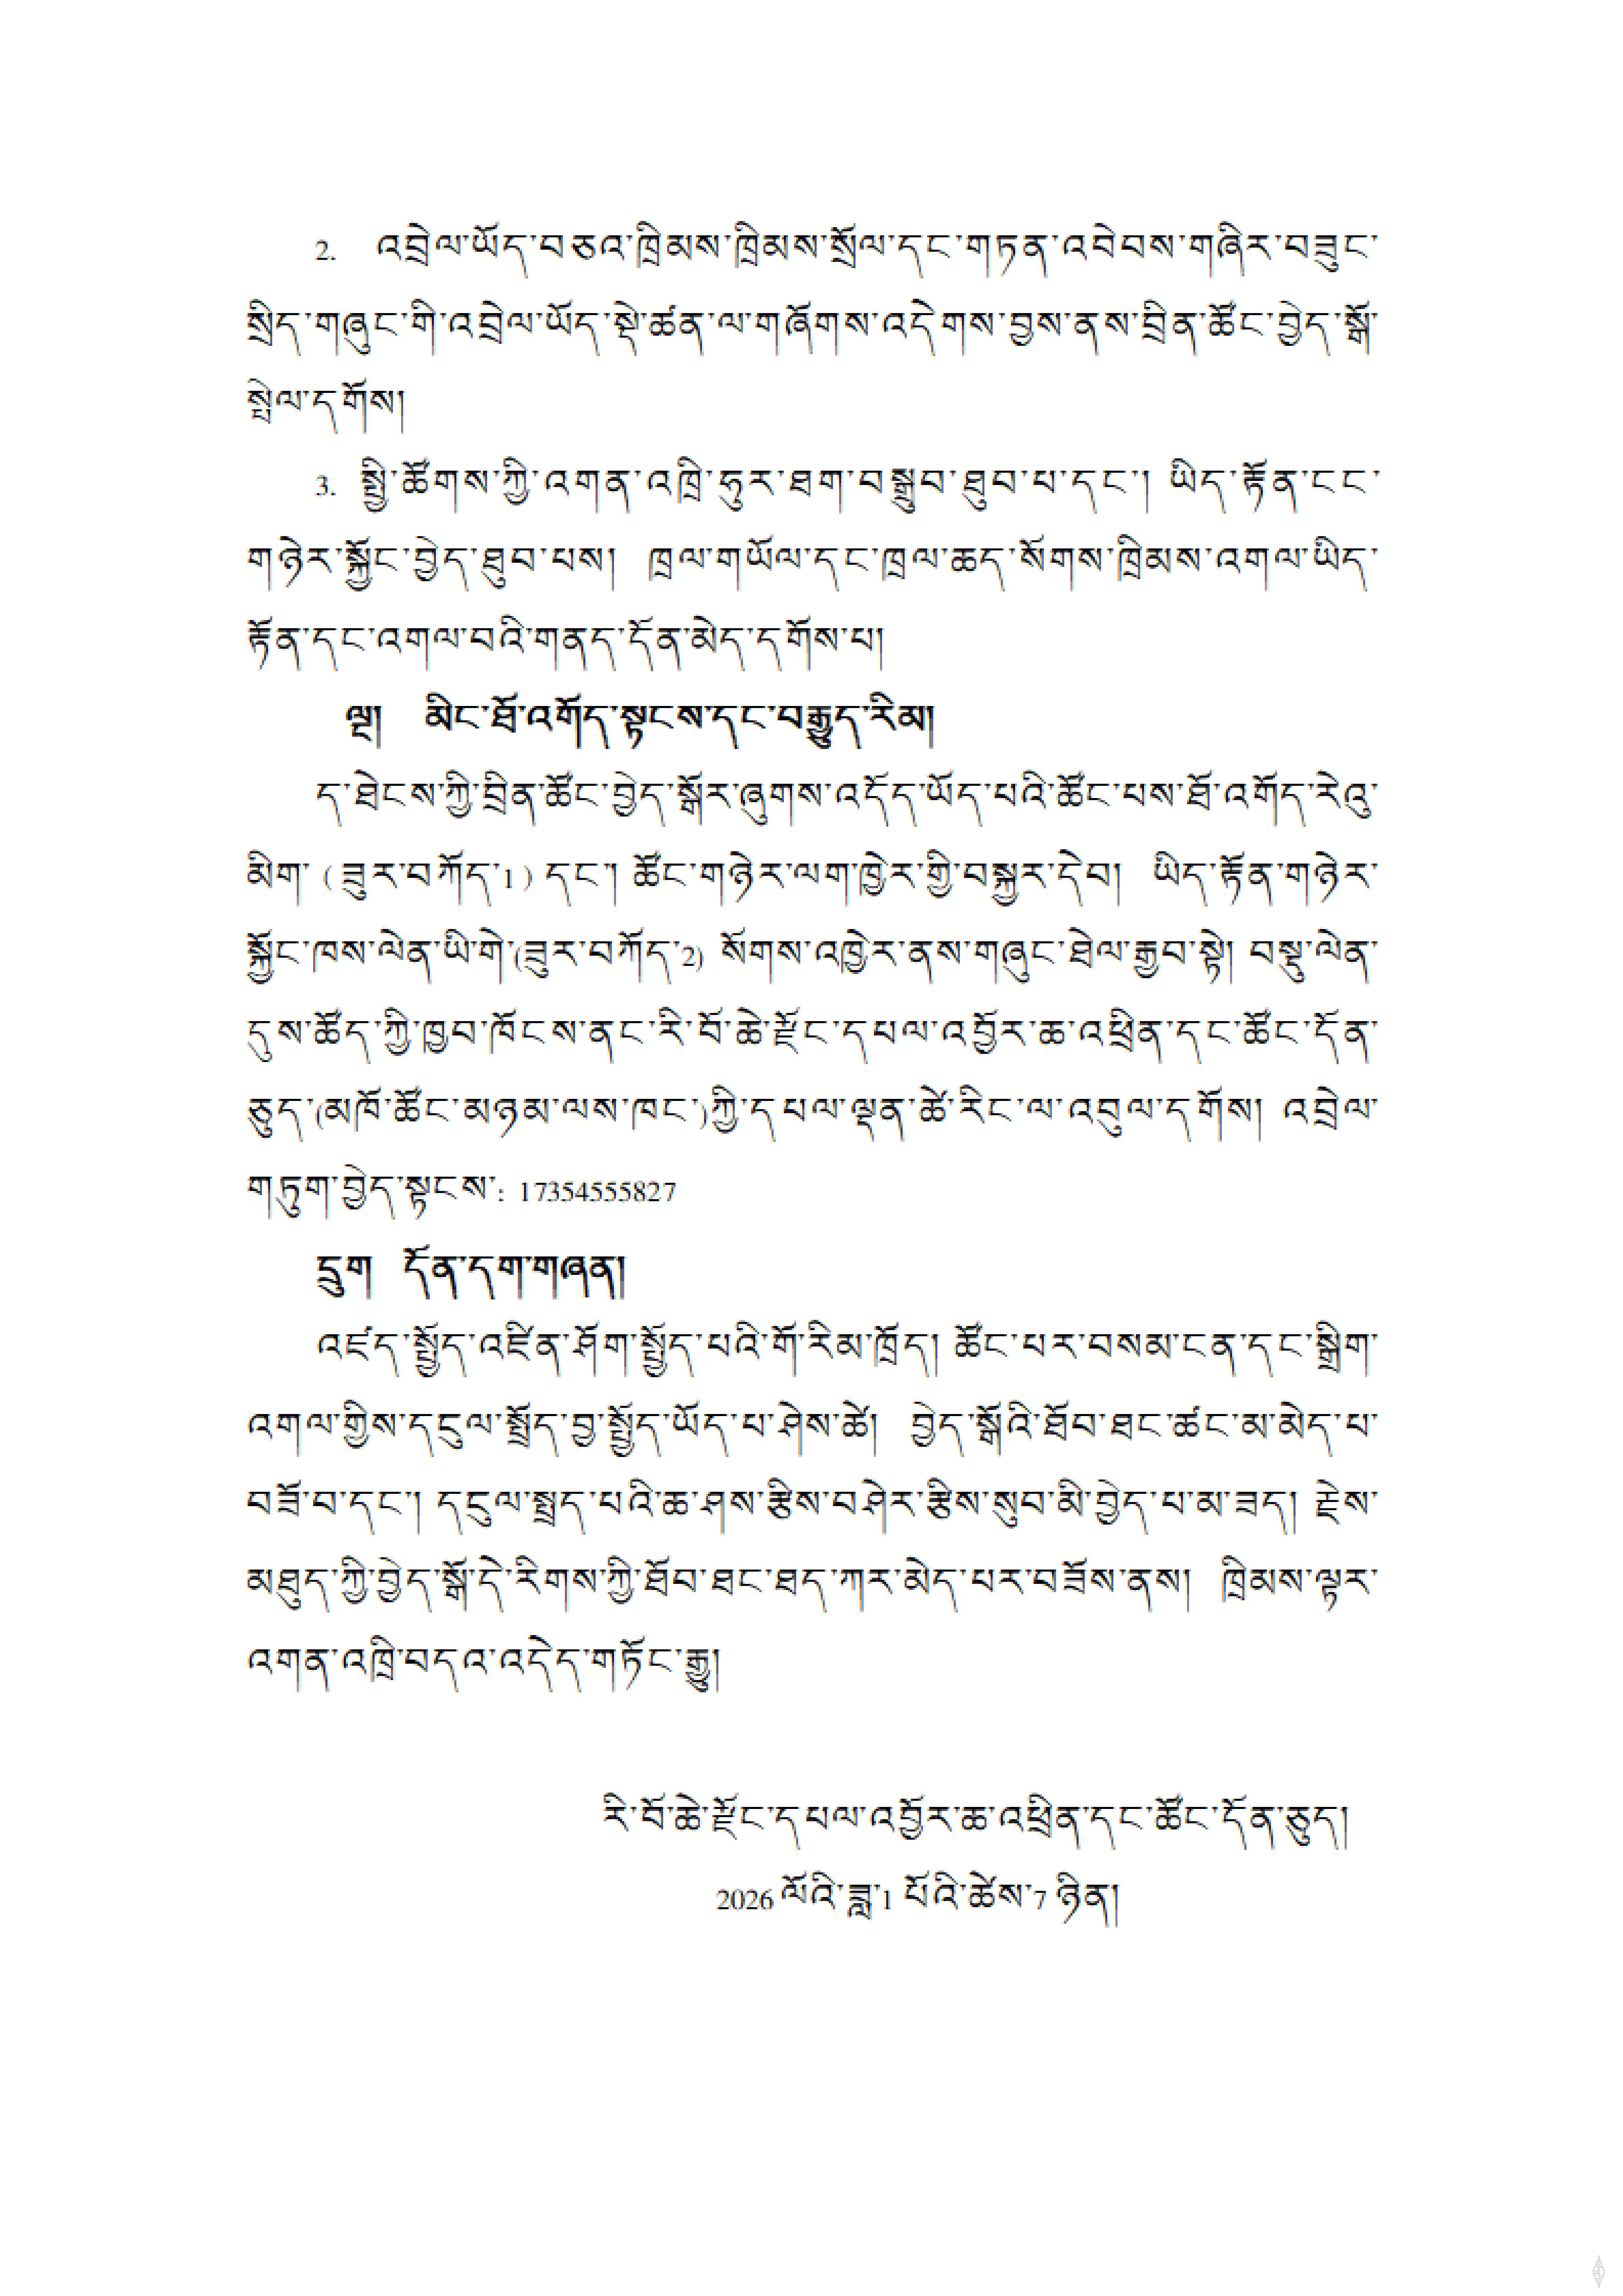 2. འབྲེལ་ཡོད་བཅའ་ཁྲིམས་ཁྲིམས་སྲོལ་དང་གཏན་འབེབས་གཞིར་བཟུང་
སྲིད་གཞུང་གི་འབྲེལ་ཡོད་སྡེ་ཚན་ལ་གཞོགས་འདེགས་བྱས་ནས་བྲིན་ཚོང་བྱེད་སྒོ་
སྤེལ་དགོས།
3. སྤྱི་ཚོགས་ཀྱི་འགན་འཁྲི་ཧུར་ཐག་བསྒྲུབ་ཐུབ་པ་དང་། ཡིད་རྟོན་ངང་
གཉེར་སྐྱོང་བྱེད་ཐུབ་པས། ཁྲལ་གཡོལ་དང་ཁྲལ་ཆད་སོགས་ཁྲིམས་འགལ་ཡིད་
རྟོན་དང་འགལ་བའི་གནད་དོན་མེད་དགོས་པ།
ལྔ། མིང་ཐོ་འགོད་སྟངས་དང་བརྒྱུད་རིམ།
ད་ཐེངས་ཀྱི་བྲིན་ཚོང་བྱེད་སྒོར་ཞུགས་འདོད་ཡོད་པའི་ཚོང་པས་ཐོ་འགོད་རེའུ་
མིག་ (ཟུར་བཀོད་1) དང་། ཚོང་གཉེར་ལག་ཁྱེར་གྱི་བསྐྱར་དེབ། ཡིད་རྟོན་གཉེར་
སྐྱོང་ཁས་ལེན་ཡི་གེ་(ཟུར་བཀོད་2) སོགས་འཁྱེར་ནས་གཞུང་ཐེལ་རྒྱབ་སྟེ། བསྡུ་ལེན་
དུས་ཚོད་ཀྱི་ཁྱབ་ཁོངས་ནང་རི་བོ་ཆེ་རྫོང་དཔལ་འབྱོར་ཆ་འཕྲིན་དང་ཚོང་དོན་
ཅུད་(མཁོ་ཚོང་མཉམ་ལས་ཁང་)ཀྱི་དཔལ་ལྡན་ཚེ་རིང་ལ་འབུལ་དགོས། འབྲེལ་
གཏུག་བྱེད་སྟངས་: 17354555827
དྲུག དོན་དག་གཞན།
འཛད་སྤྱོད་འཛིན་ཤོག་སྤྱོད་པའི་གོ་རིམ་ཁྲོད། ཚོང་པར་བསམ་ངན་དང་སྒྲིག་
འགལ་གྱིས་དངུལ་སྤྲོད་བྱ་སྤྱོད་ཡོད་པ་ཤེས་ཚེ། བྱེད་སྒོའི་ཐོབ་ཐང་ཚང་མ་མེད་པ་
བཟོ་བ་དང་། དངུལ་སྤྲད་པའི་ཆ་ཤས་རྩིས་བཤེར་རྩིས་སུབ་མི་བྱེད་པ་མ་ཟད། རྗེས་
མཐུད་ཀྱི་བྱེད་སྒོ་དེ་རིགས་ཀྱི་ཐོབ་ཐང་ཐད་ཀར་མེད་པར་བཟོས་ནས། ཁྲིམས་ལྟར་
འགན་འཁྲི་བདའ་འདེད་གཏོང་རྒྱུ།
རི་བོ་ཆེ་རྫོང་དཔལ་འབྱོར་ཆ་འཕྲིན་དང་ཚོང་དོན་ཅུད།
2026 ལོའི་ཟླ་1 པོའི་ཚེས་7 ཉིན།